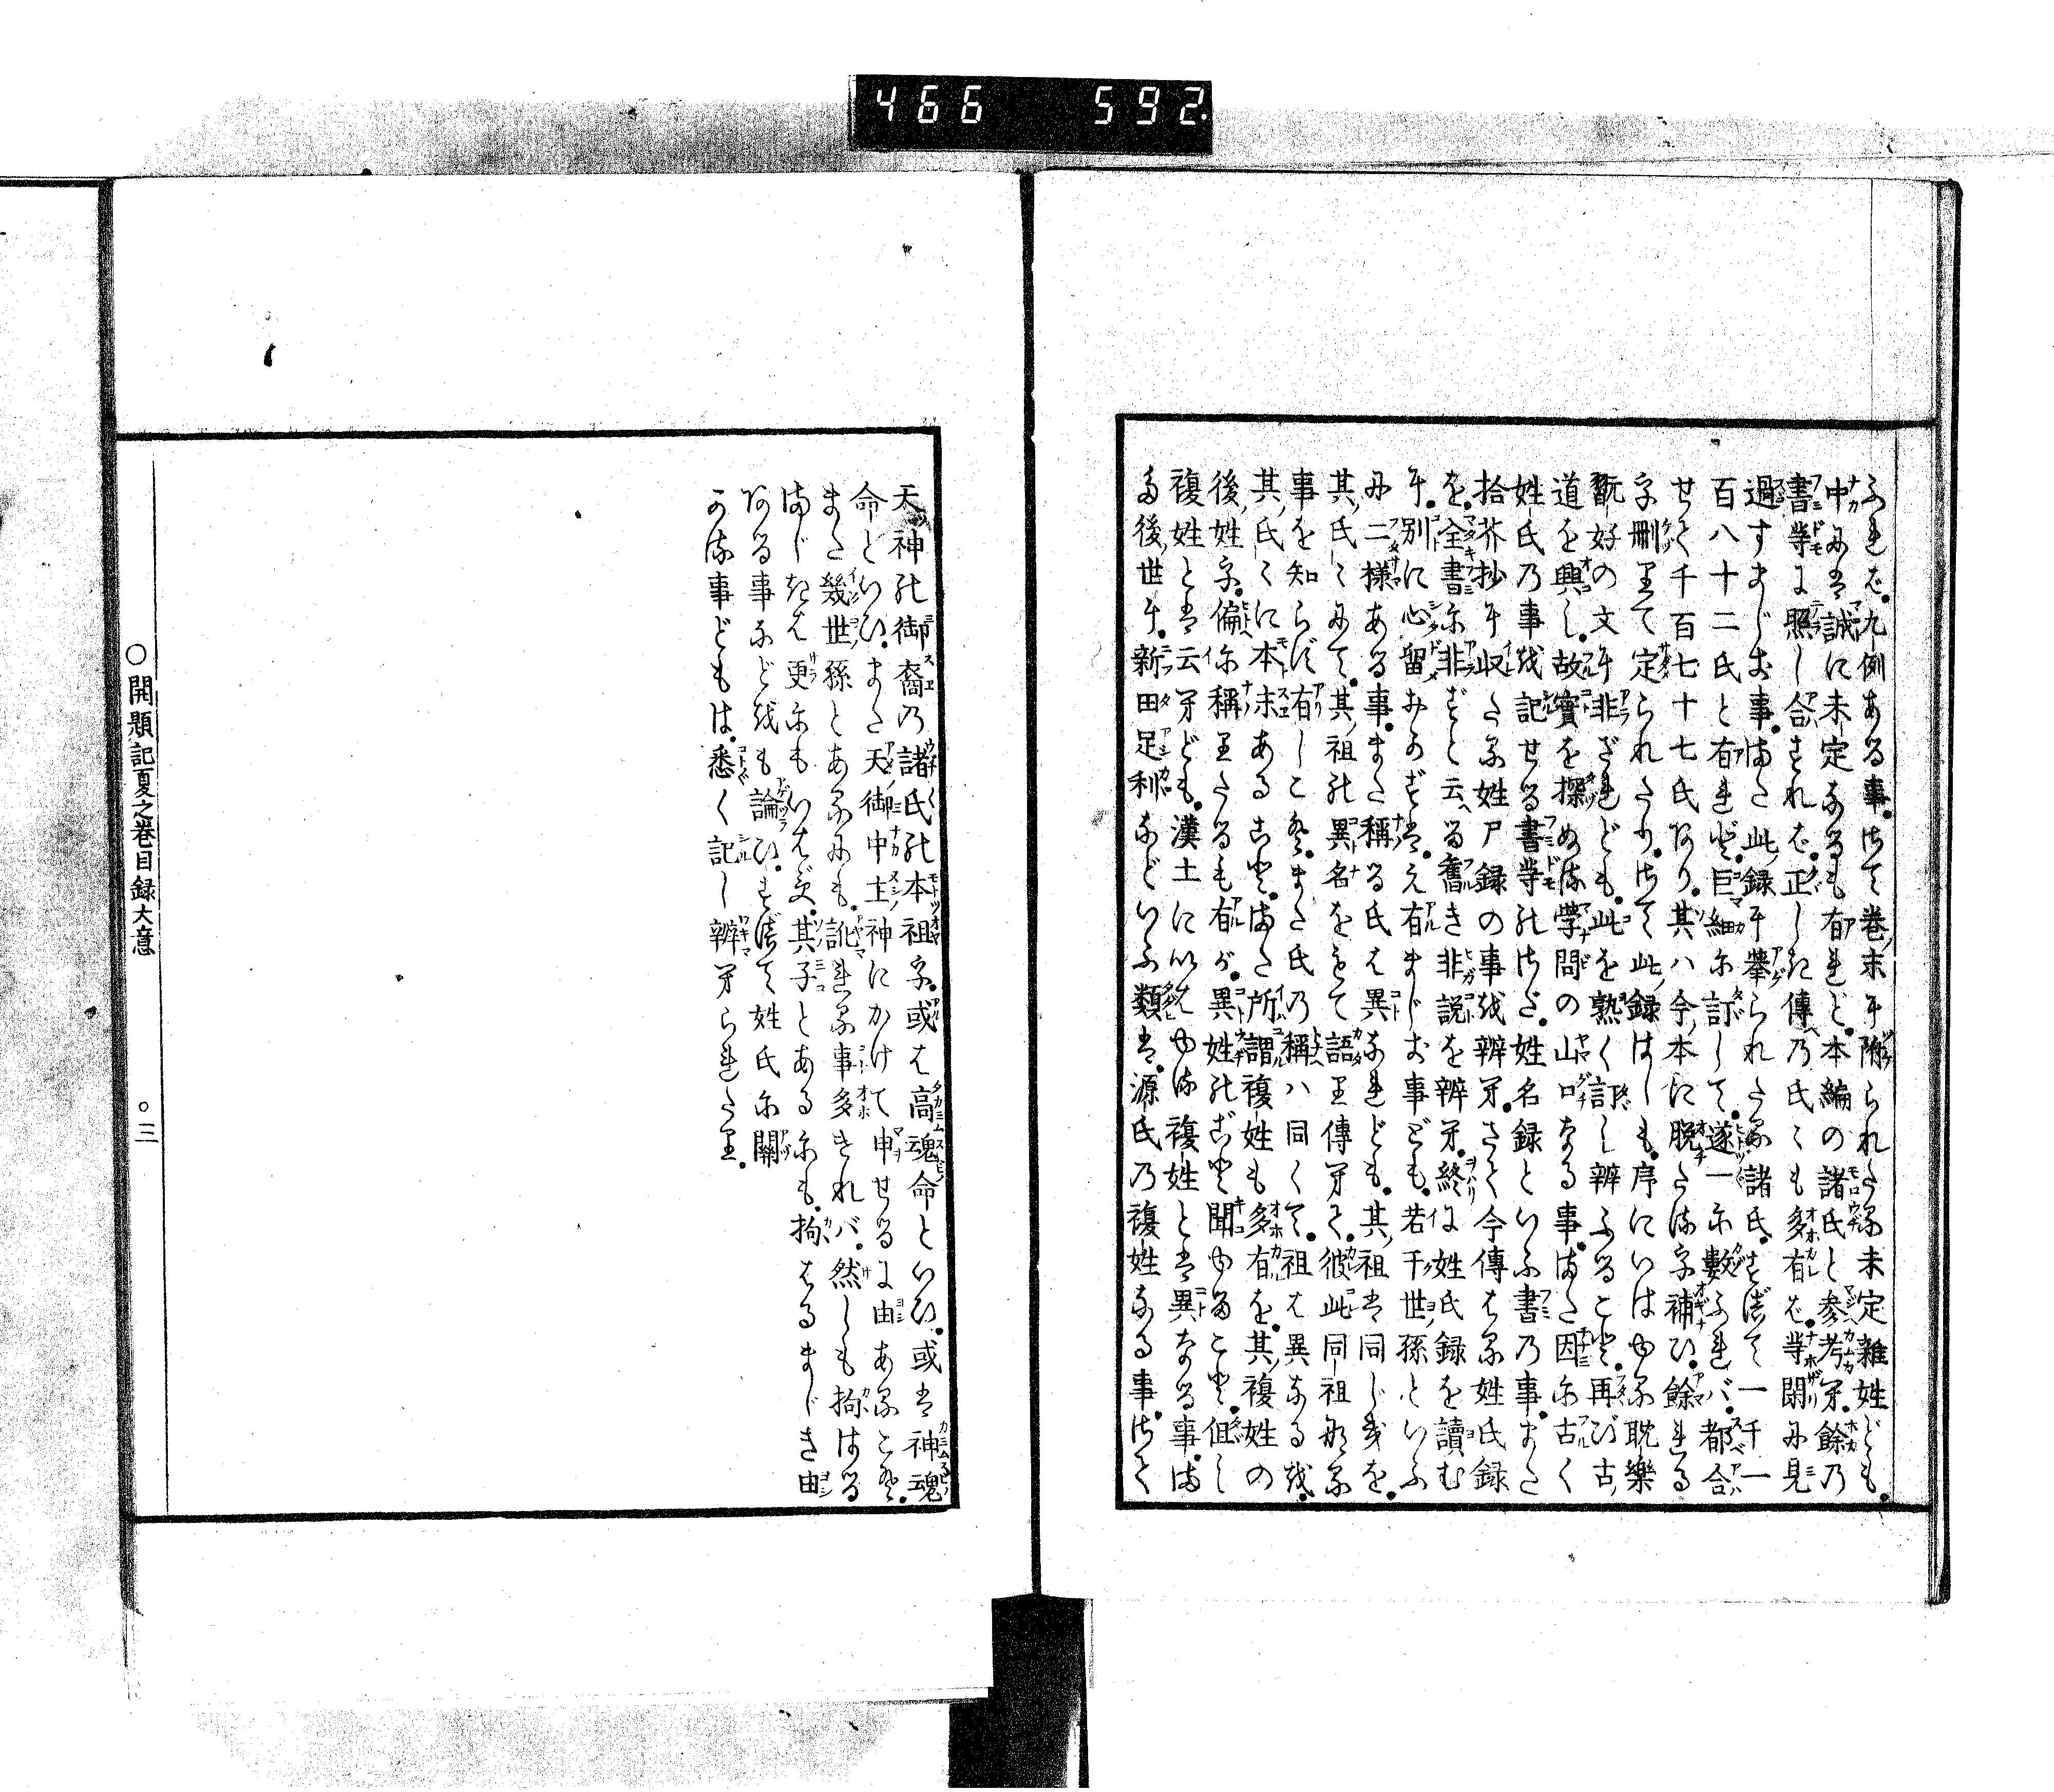 466 592.
ふれば。九例ある事。さて巻ノ末に附られたる未定雜姓ども。
中には誠に未定なるも有れど。本編の諸氏と參考へ。餘の
書等に照し合されば。正しき傳の氏〻も多有ば。等閑に見
過すまじき事。また此ノ録に擧られたる諸氏。すべて一千一
百八十二氏と有れど。巨細に訂して。遂一に數ふれバ。都合
せて千百七十七氏なり。其ハ今ノ本に脱たる字補ひ。餘れる
字刪りて定られたり。さて此ノ録はしも。序にいはゆる耽樂
翫好の文に非ざれども。此を熟く訂し辨ふること。再び古ノ
道を興し。故實を探ぬる學問の山口なる事。また因に古く
姓氏の事を記せる書等のさだ。姓名録といふ書の事。また
拾芥抄に収たる姓尸録の事を辨へ。さて今傳はる姓氏録
を。全書に非ずと云へる舊き非説を辨へ。終に姓氏録を讀む
に。別に心留みのずは。え有まじき事ども。若干世ノ孫といふ
に二樣ある事。また稱る氏は異なれども。其ノ祖は同じきを。
其ノ氏〻にて。其ノ祖の異名をもて語り傳へて。彼此同祖なる
事を知らに有しこと。また氏の稱ハ同くて。祖は異なるを。
其ノ氏〻に本末あること。また所謂複姓も多有を。其ノ複姓の
後ノ姓を。偏に稱りたるも有が。異姓のごと聞ゆること。但し
複姓とは云へども。漢土に以はゆる複姓とは異なる事。ま
た後ノ世に。新田足利などいふ類は。源氏の複姓なる事。さて
天ツ神の御裔の諸氏の本祖を。或は高魂命といひ。或は神魂
命といひ。また天ノ御中主神にかけて申せるに由あること。
また幾世ノ孫とあるにも。訛れる事多きれバ。然しも拘はる
まじきは更にもいはず。其ノ子とあるにも。拘はるまじき由
なる事などをも論ひ。すべて姓氏に關
かる事どもは。悉く記し辨へられたり。
○開題記夏之巻目録大意 ○三